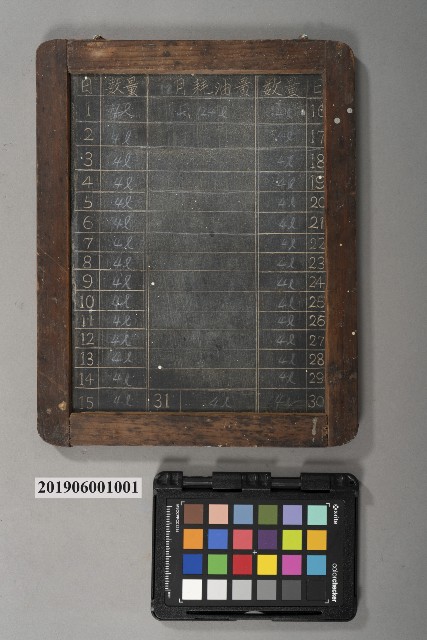 日 數量 月耗油量 數量 日
1 4l 4l 16
2 4l 4l 17
3 4l 4l 18
4 4l 4l 19
5 4l 4l 20
6 4l 4l 21
7 4l 4l 22
8 4l 4l 23
9 4l 4l 24
10 4l 4l 25
11 4l 4l 26
12 4l 4l 27
13 4l 4l 28
14 4l 4l 29
15 4l 31 4l 30
201906001001
x-rite
colorchecker